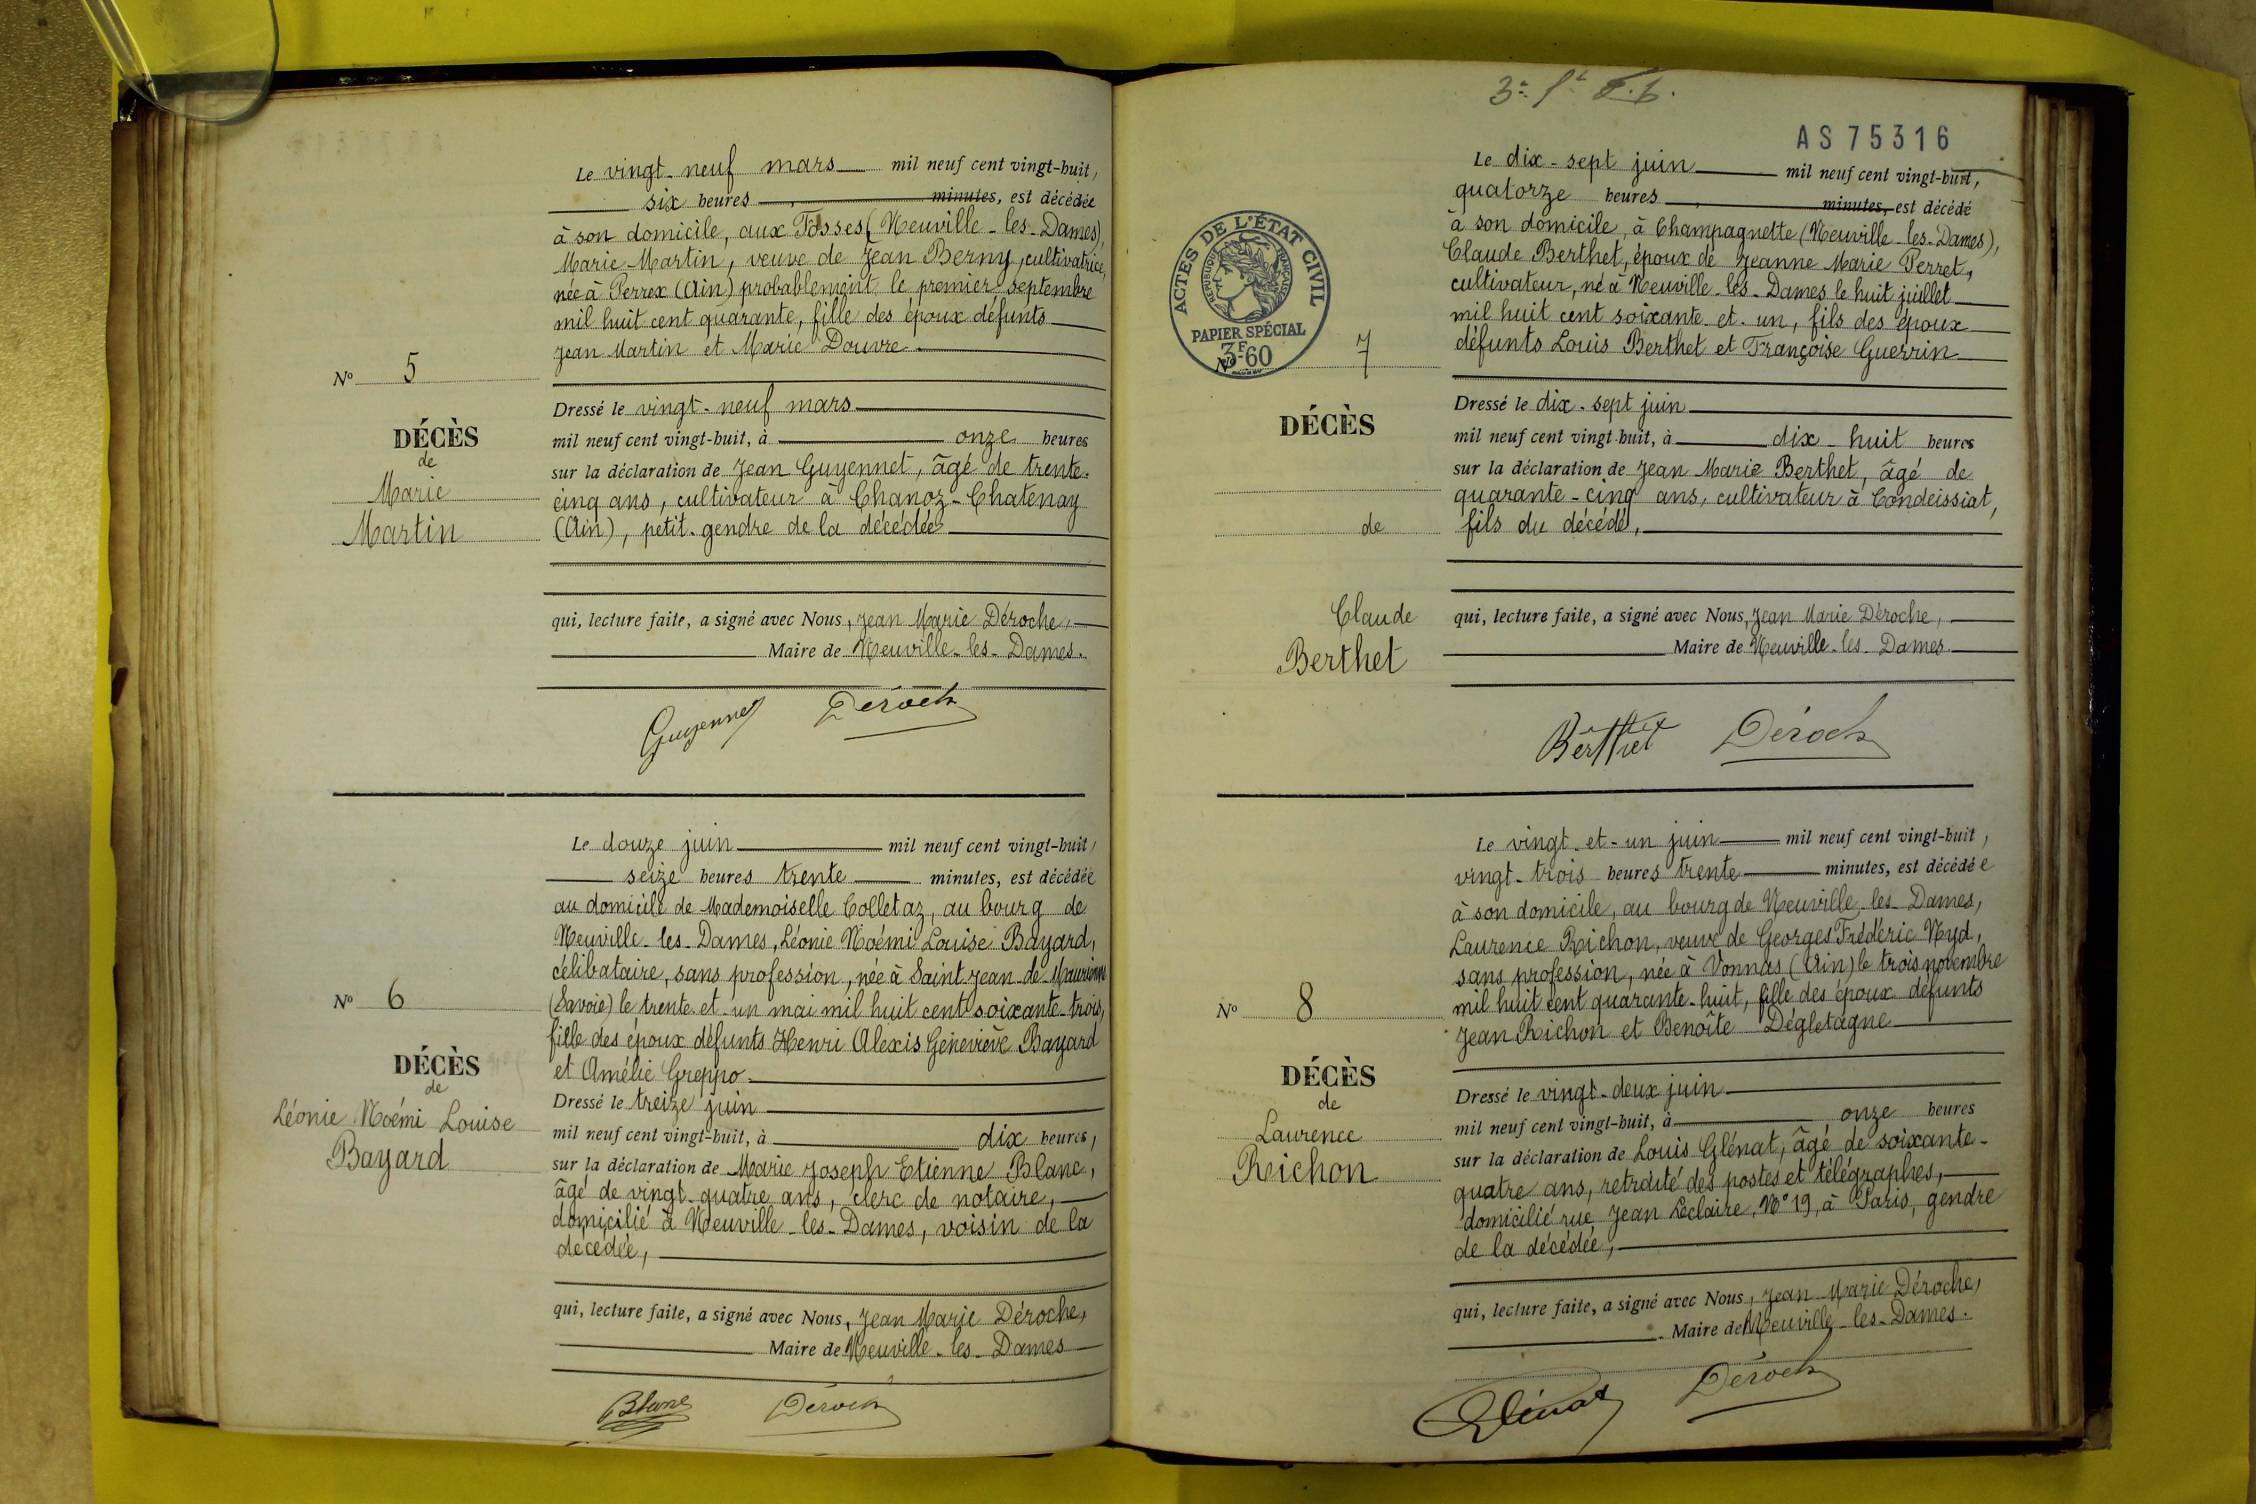 Le vingt-neuf mars mil neuf cent vingt-huit,
six heures minutes, est décédée
à son domicile, aux Fosses (Neuville-les-Dames),
Marie Martin, veuve de Jean Berny, cultivatrice,
née à Perrex (Ain) probablement le premier septembre
mil huit cent quarante, fille des époux défunts
Jean Martin et Marie Douvre
No 5
DÉCÈS
de
Marie
Martin
Dressé le vingt-neuf mars
mil neuf cent vingt-huit, à onze heures
sur la déclaration de Jean Guyennet, âgé de trente-
cinq ans, cultivateur à Chanoz-Chatenay
(Ain), petit-gendre de la décédée
qui, lecture faite, a signé avec Nous, Jean Marie Déroche,
Maire de Neuville-les-Dames.
Guyennet Déroche
Le douze juin mil neuf cent vingt-huit,
seize heures trente minutes, est décédée
au domicile de Mademoiselle Colletaz, au bourg de
Neuville-les-Dames, Léonie Noémi Louise Bayard,
célibataire, sans profession, née à Saint-Jean-de-Maurienne
(Savoie) le trente-et-un mai mil huit cent soixante-trois,
fille des époux défunts Henri Alexis Geneviève Bayard
et Amélie Greppo
No 6
DÉCÈS
de
Léonie Noémi Louise
Bayard
Dressé le treize juin
mil neuf cent vingt-huit, à dix heures,
sur la déclaration de Marie Joseph Etienne Blanc,
âgé de vingt-quatre ans, clerc de notaire,
domicilié à Neuville-les-Dames, voisin de la
décédée,
qui, lecture faite, a signé avec Nous, Jean Marie Déroche,
Maire de Neuville-les-Dames
Blanc Déroche
AS 75316
ACTES DE L'ÉTAT CIVIL
RÉPUBLIQUE FRANÇAISE
PAPIER SPÉCIAL
3F60
Le dix-sept juin mil neuf cent vingt-huit,
quatorze heures minutes, est décédé
à son domicile, à Champagnette (Neuville-les-Dames),
Claude Berthet, époux de Jeanne Marie Perret,
cultivateur, né à Neuville-les-Dames le huit juillet
mil huit cent soixante-et-un, fils des époux
défunts Louis Berthet et Françoise Guerrin
No 7
DÉCÈS
de
Claude
Berthet
Dressé le dix-sept juin
mil neuf cent vingt-huit, à dix-huit heures
sur la déclaration de Jean Marie Berthet, âgé de
quarante-cinq ans, cultivateur à Condeissiat,
fils du décédé,
qui, lecture faite, a signé avec Nous, Jean Marie Déroche,
Maire de Neuville-les-Dames
Berthet Déroche
Le vingt-et-un juin mil neuf cent vingt-huit,
vingt-trois heures trente minutes, est décédée
à son domicile, au bourg de Neuville-les-Dames,
Laurence Richon, veuve de Georges Frédéric Nyd,
sans profession, née à Vonnas (Ain) le trois novembre
mil huit cent quarante-huit, fille des époux défunts
Jean Richon et Benoîte Dégletagne
No 8
DÉCÈS
de
Laurence
Richon
Dressé le vingt-deux juin
mil neuf cent vingt-huit, à onze heures
sur la déclaration de Louis Glénat, âgé de soixante-
quatre ans, retraité des postes et télégraphes,
domicilié rue Jean Leclaire, No 19, à Paris, gendre
de la décédée,
qui, lecture faite, a signé avec Nous, Jean Marie Déroche,
Maire de Neuville-les-Dames.
Glénat Déroche